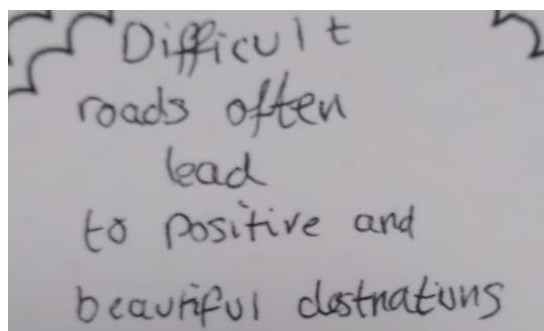 Difficult
roads often
lead
to positive and
beautiful destnations